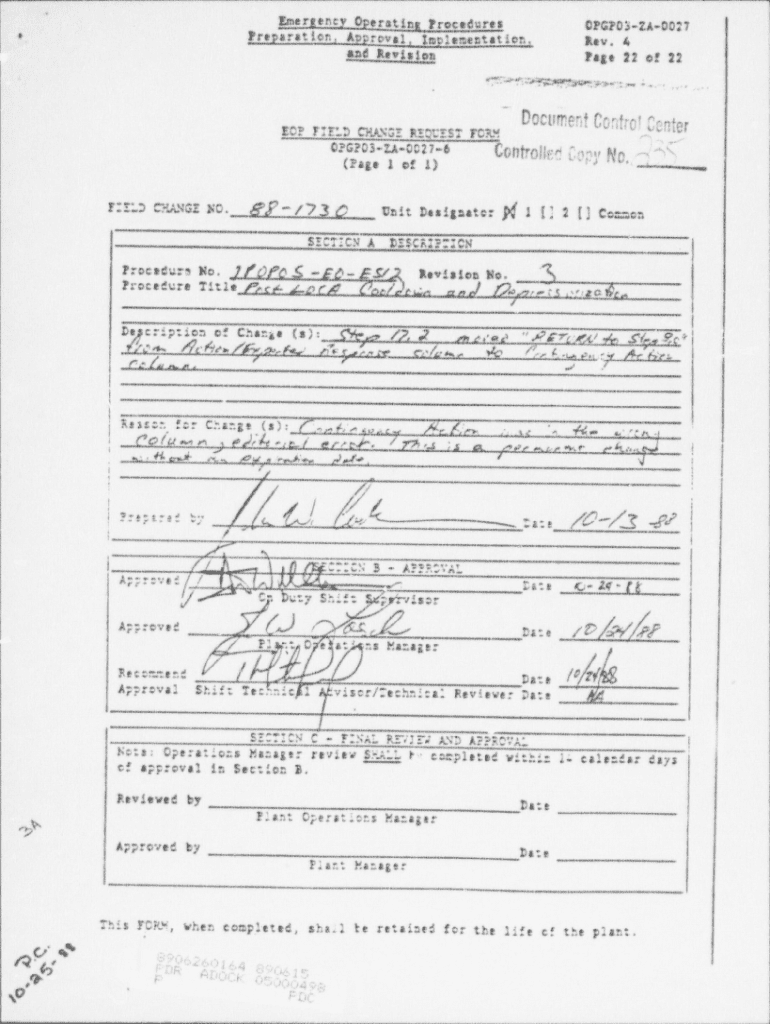 Emergency Operating Procedures
Preparation, Approval, Implementation,
and Revision
OPGP03-ZA-0027
Rev. 4
Page 22 of 22
Document Control Center
Controlled Copy No. 335
EOP FIELD CHANGE REQUEST FORM
OPGP03-ZA-0027-6
(Page 1 of 1)
FIELD CHANGE NO. 88-1730 Unit Designator [X] 1 [] 2 [] Common
SECTION A DESCRIPTION
Procedure No. 1POP05-EO-ES12 Revision No. 3
Procedure Title Post LOCA Cooldown and Depressurization
Description of Change (s): Step 17.2 moved "RETURN to Step
from Action/Expected Response column to Contingency Action
column.
Reason for Change (s): Contingency Action was in the wrong
column, editorial error. This is a permanent change
without an expiration date.
Prepared by Date 10-13-88
SECTION B - APPROVAL
Approved Date 10-24-88
On Duty Shift Supervisor
Approved Date 10/24/88
Plant Operations Manager
Recommend Date 10/24/88
Approval Shift Technical Advisor/Technical Reviewer Date NA
SECTION C - FINAL REVIEW AND APPROVAL
Note: Operations Manager review SHALL be completed within 14 calendar days
of approval in Section B.
Reviewed by Date
Plant Operations Manager
Approved by Date
Plant Manager
3A
This FORM, when completed, shall be retained for the life of the plant.
P.C.
10-25-88
8906260164 890615
PDR ADOCK 05000498
P PDC